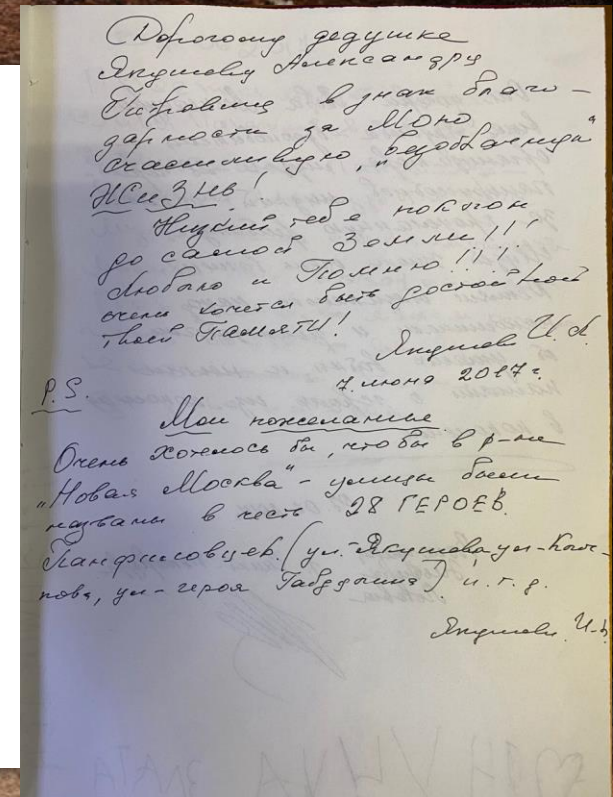 Дорогому дедушке
Якушеву Александру
Петровичу в знак благо-
дарности за мою
счастливую, „безоблачную"
жизнь!
Низкий тебе поклон
до самой Земли!!!
Люблю и Помню!!!
очень хочется быть достойной
твоей Памяти!
Якушева И. А.
7. июня 2017 г.
P.S.
Мои пожелания
Очень хотелось бы, что бы в р-не
„Новая Москва" - улицы были
названы в честь 28 ГЕРОЕВ
Панфиловцев. (ул.-Якушева ул-Клоч-
кова, ул-героя Габдулина) и. т. д.
Якушева И-А.